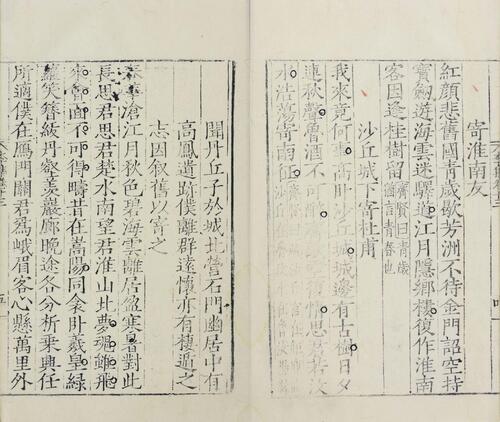 寄淮南友
紅顔悲舊國青歲歇芳洲不待金門詔空持
寶劔遊海雲迷驛道江月隱鄉樓復作淮南
客因逢桂樹留
沙丘城下寄杜甫
我來竟何事高卧沙丘城城邊有古樹日夕
連秋聲魯酒不可醉
情思君若汶
水浩蕩寄南征
聞丹丘子於城北營石門幽居中有
高鳳遺跡僕離群遠懷亦有棲遁之
志因叙舊以寄之
春華滄江月秋色碧海雲離居盈寒暑對此
長思君思君楚水南望君淮山北夢魂雖飛
來會面不可得疇昔在嵩陽同衾卧羲皇綠
蘿笑簪紱丹壑賤巖廊晩途各分析乗興任
所適僕在鴈門關君爲峨眉客心懸萬里外